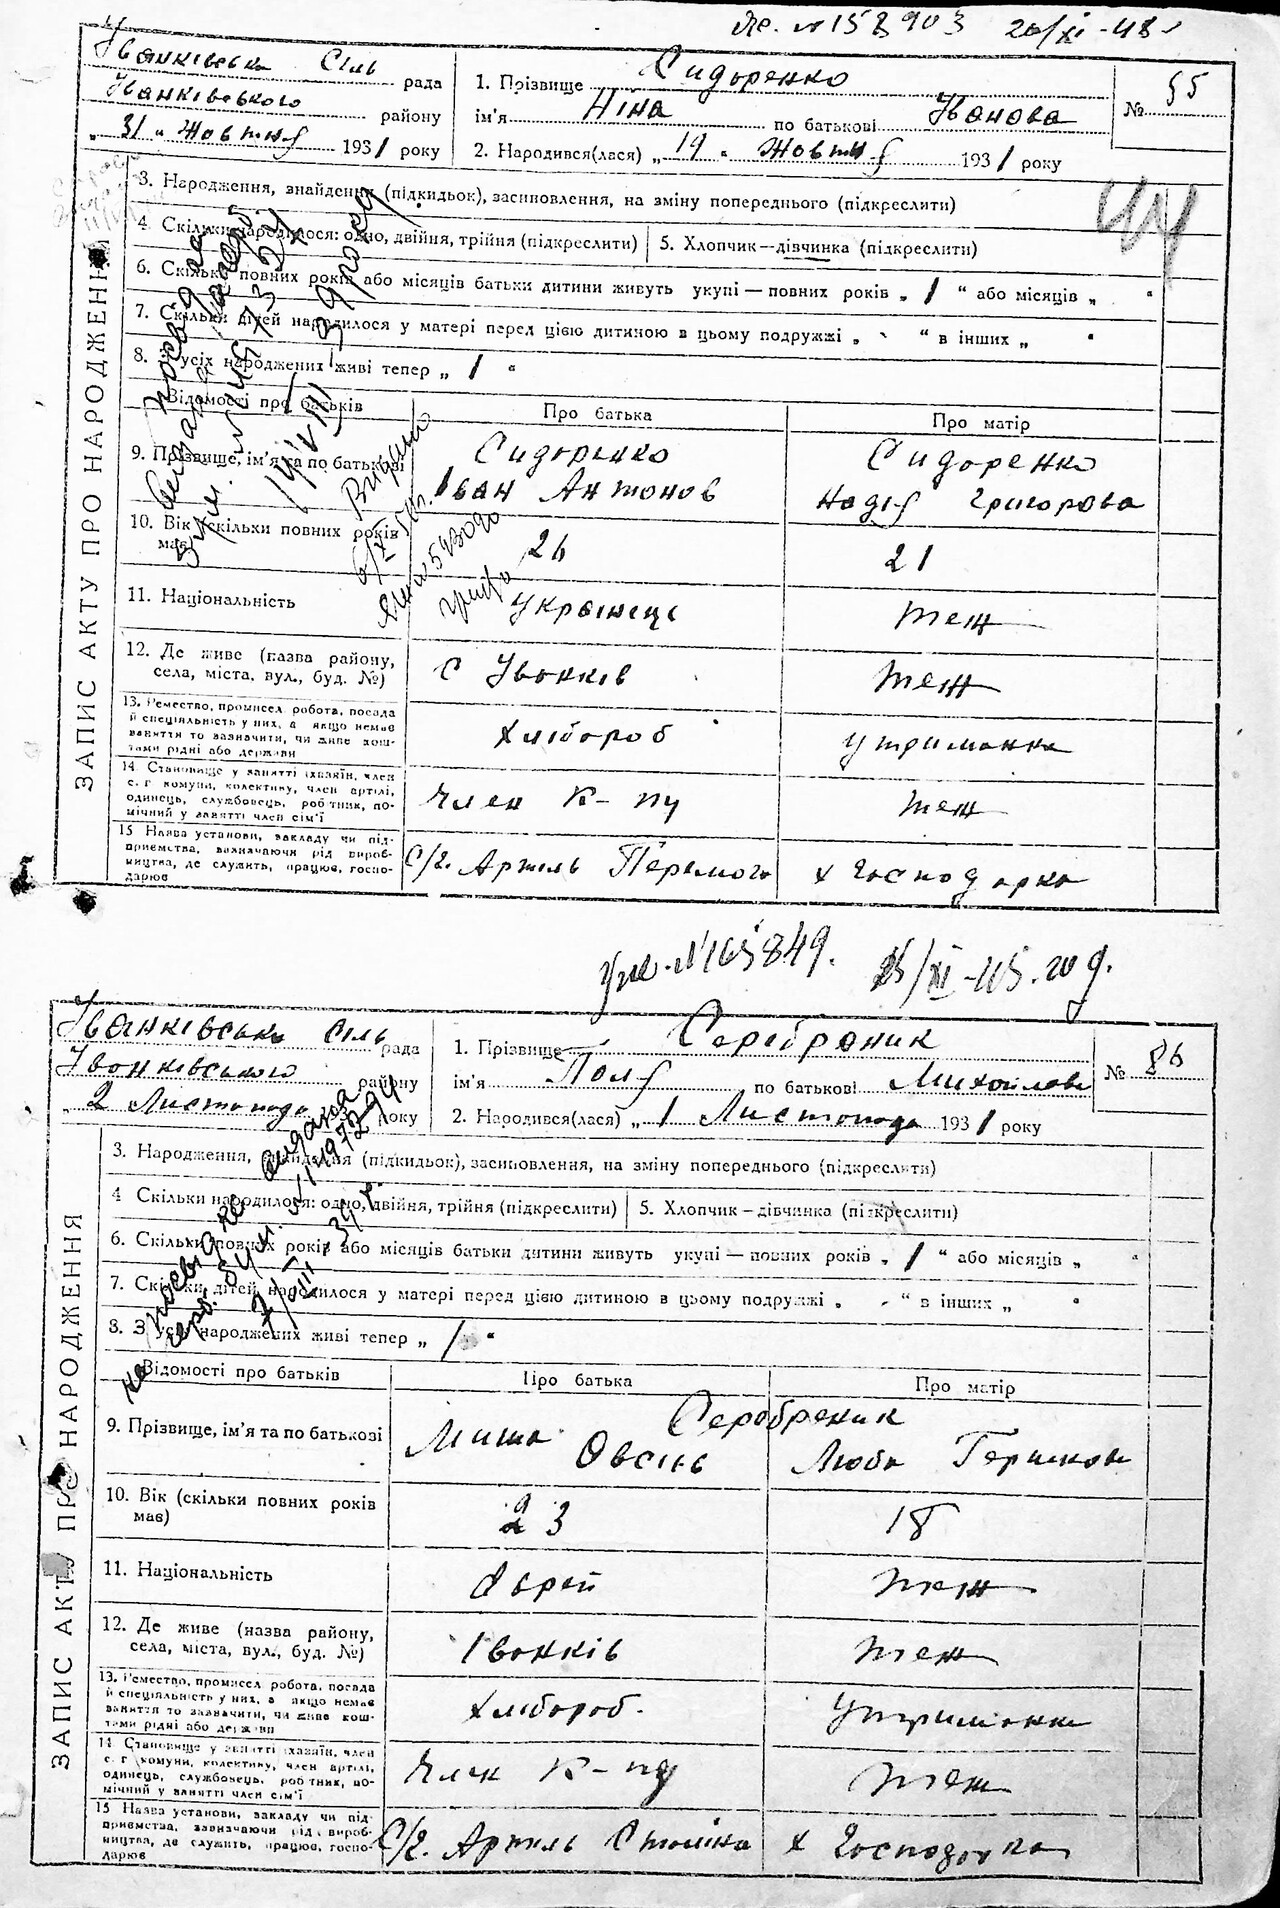 № 158903 20/XI-48
Іванківська Сіль рада
Іванківського району
„ 31 “ Жовтня 1931 року
1. Прізвище Сидоренко
ім'я Ніна по батькові Іванова
2. Народився(лася) „ 19 “ Жовтня 1931 року
№ 55
44
ЗАПИС АКТУ ПРО НАРОДЖЕННЯ
3. Народження, знайдення (підкидьок), засиновлення, на зміну попереднього (підкреслити)
4. Скільки народилося: одно, двійня, трійня (підкреслити)
5. Хлопчик—дівчинка (підкреслити)
6. Скільки повних років або місяців батьки дитини живуть укупі — повних років „ 1 “ або місяців „ “
7. Скільки дітей народилося у матері перед цією дитиною в цьому подружжі „ “ в інших „ “
8. З усіх народжених живі тепер „ 1 “
Відомості про батьків
Про батька
Про матір
9. Прізвище, ім'я та по батькові
Сидоренко
Іван Антонов
Сидоренко
Надя Григорова
10. Вік (скільки повних років
має)
26
21
11. Національність
Українець
теж
12. Де живе (назва району,
села, міста, вул., буд. №)
с Іванків
теж
13. Ремество, промисел, робота, посада
й спеціяльність у них, а якщо немає
заняття то зазначити, чи живе кош-
тами рідні або держави
Хлібороб
утриманка
14. Становище у занятті (хазяїн, член
с. г комуни, колективу, член артілі,
одинець, службовець, робітник, по-
мічний у занятті член сім'ї
Член К-ву
теж
15 Назва установи, закладу чи під-
приємства, зазначаючи рід вироб-
ництва, де служить, працює, госпо-
дарює
С/г. Артіль Перемога
х Господарка
№ 165849. 15/XI-45. год.
Іванківська сіль рада
Іванківського району
„ 2 Листопада 193 року
1. Прізвище Серебраник
ім'я Поля по батькові Михайлова
2. Народився(лася) „ 1 Листопада 1931 року
№ 86
ЗАПИС АКТУ ПРО НАРОДЖЕННЯ
3. Народження, знайдення (підкидьок), засиновлення, на зміну попереднього (підкреслити)
4 Скільки народилося: одно, двійня, трійня (підкреслити)
5. Хлопчик—дівчинка (підкреслити)
6. Скільки повних років або місяців батьки дитини живуть укупі — повних років „ 1 “ або місяців „ “
7. Скільки дітей народилося у матері перед цією дитиною в цьому подружжі „ “ в інших „ “
8. З усіх народжених живі тепер „ 1 “
Відомості про батьків
Про батька
Про матір
9. Прізвище, ім'я та по батькові
Серебреник
Миша Овсій
Люба Гершкова
10. Вік (скільки повних років
має)
23
18
11. Національність
Єврей
теж
12. Де живе (назва району,
села, міста, вул., буд. №)
Іванків
теж
13. Ремество, промисел, робота, посада
й спеціяльність у них, а якщо немає
заняття то зазначити, чи живе кош-
тами рідні або держави
Хлібороб.
Утриманка
14 Становище у занятті (хазяїн, член
с. г комуни, колективу, член артілі,
одинець, службовець, робітник, по-
мічний у занятті член сім'ї
Член К-ву
теж
15 Назва установи, закладу чи під-
приємства, зазначаючи рід вироб-
ництва, де служить, працює, госпо-
дарює
С/г. Артіль Сталіна
х Господарка